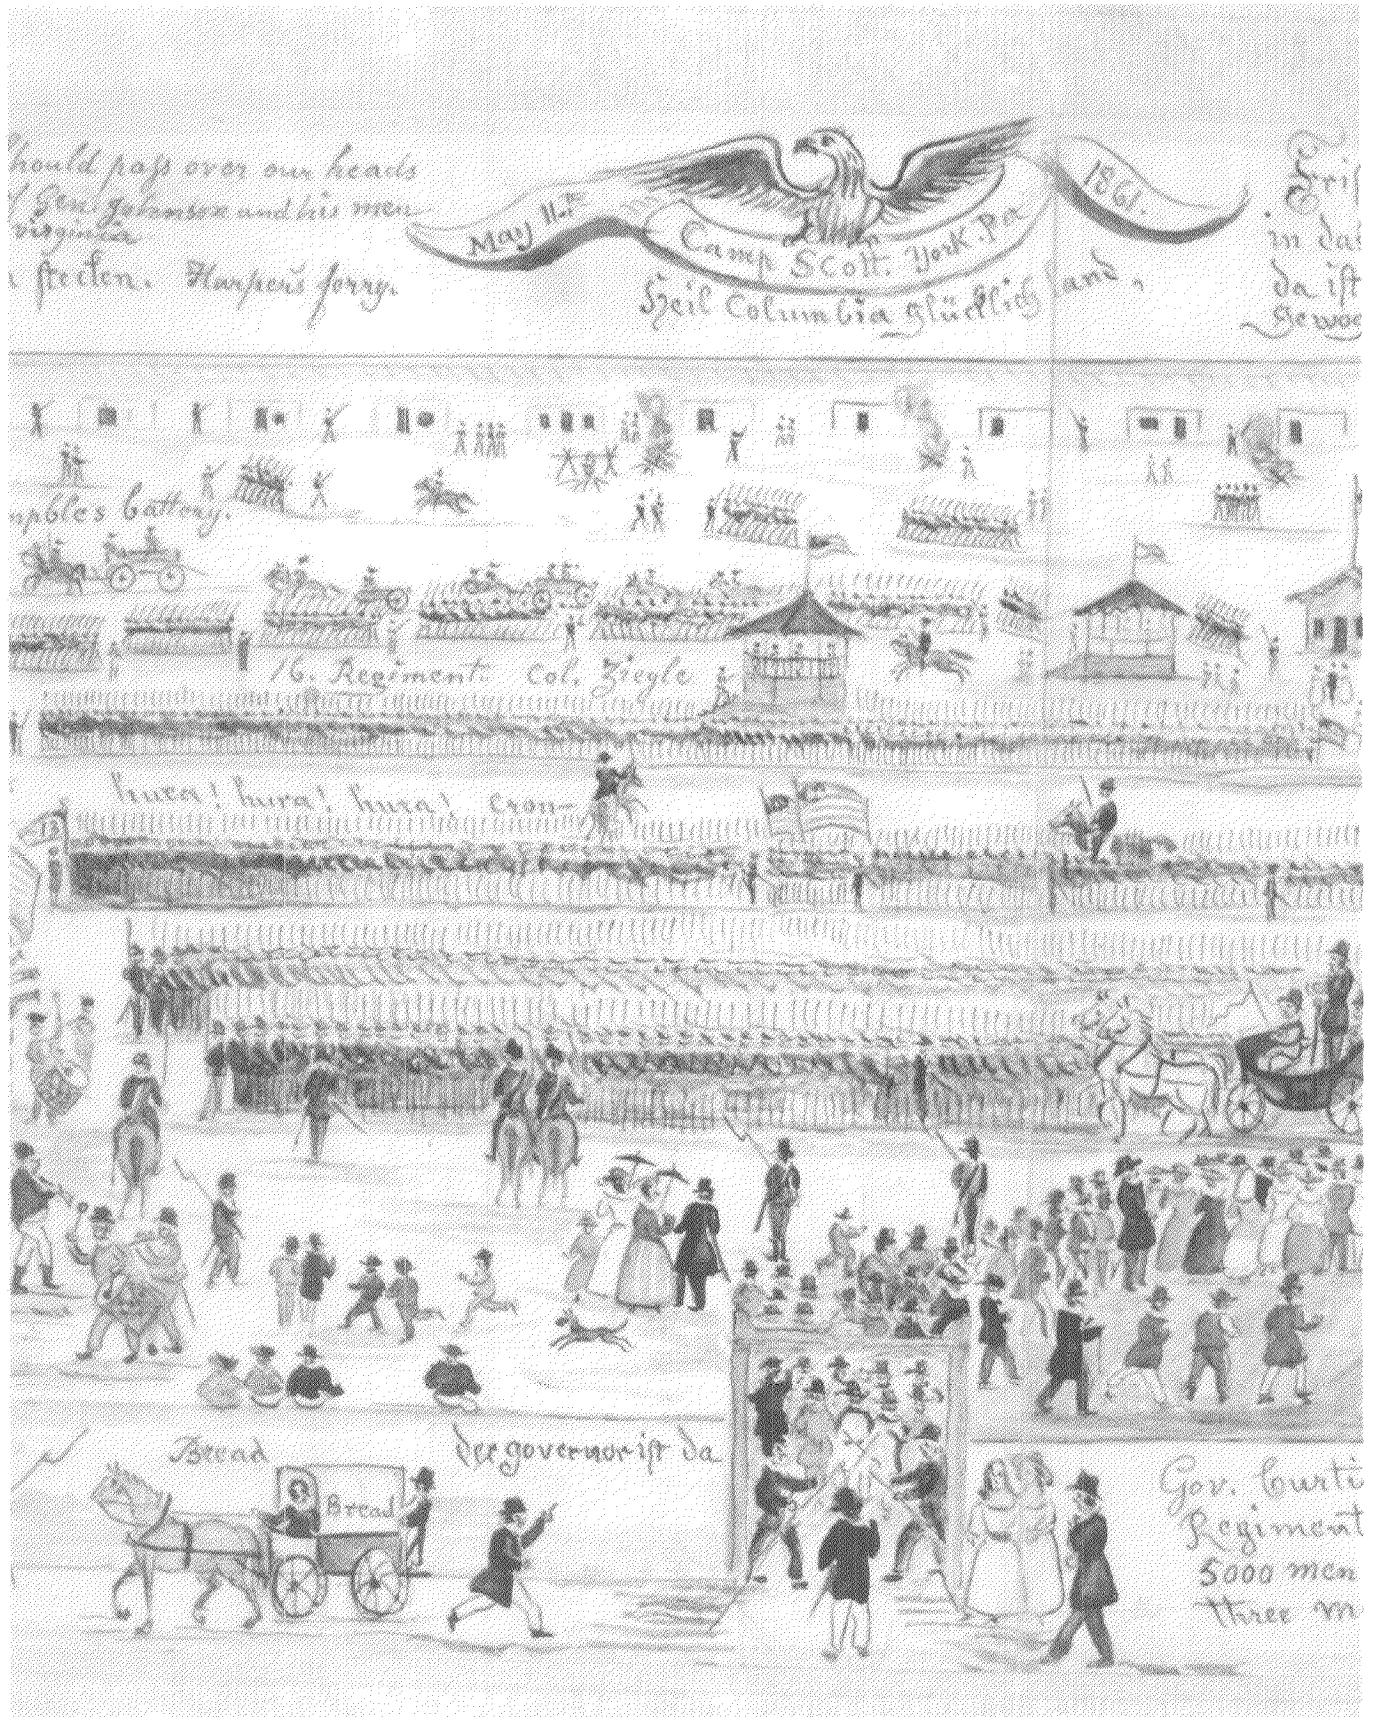 should pass over our heads
Gen: Johnson and his men
virginia
stecken. Harper's ferry.
May 11th
Camp Scott. York. Pa
1861.
Heil Columbia glücklich land,
in das
da ist
battery.
16. Regiment. Col. Ziegle
hura! hura! hura!
Bread
Bread
der governor ist da
Gov. Curti
Regiment
5000 men
three m